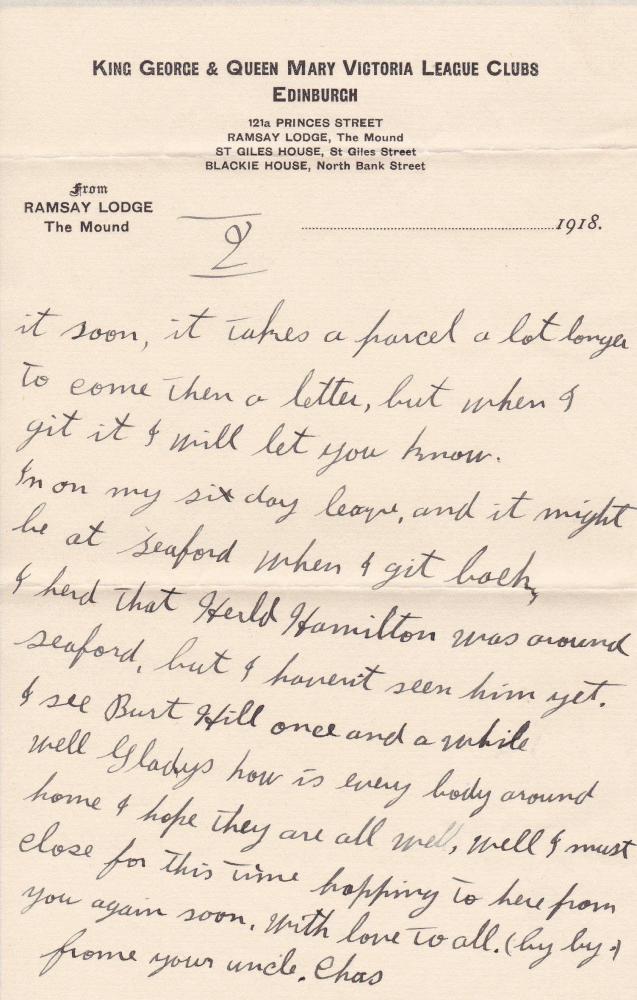 KING GEORGE & QUEEN MARY VICTORIA LEAGUE CLUBS
EDINBURGH
121a PRINCES STREET
RAMSAY LODGE, The Mound
ST GILES HOUSE, St Giles Street
BLACKIE HOUSE, North Bank Street
From
RAMSAY LODGE
The Mound
2
1918.
it soon, it takes a parcel a lot longer
to come then a letter, but when I
git it I will let you know.
In on my six day leave, and it might
be at seaford when I git back,
I herd that Herld Hamilton was around
seaford, but I havent seen him yet.
I see Burt Hill once and a while
well Gladys how is every body around
home I hope they are all well, well I must
close for this time hopping to here from
you again soon. With love to all. (by by.)
frome your uncle. Chas